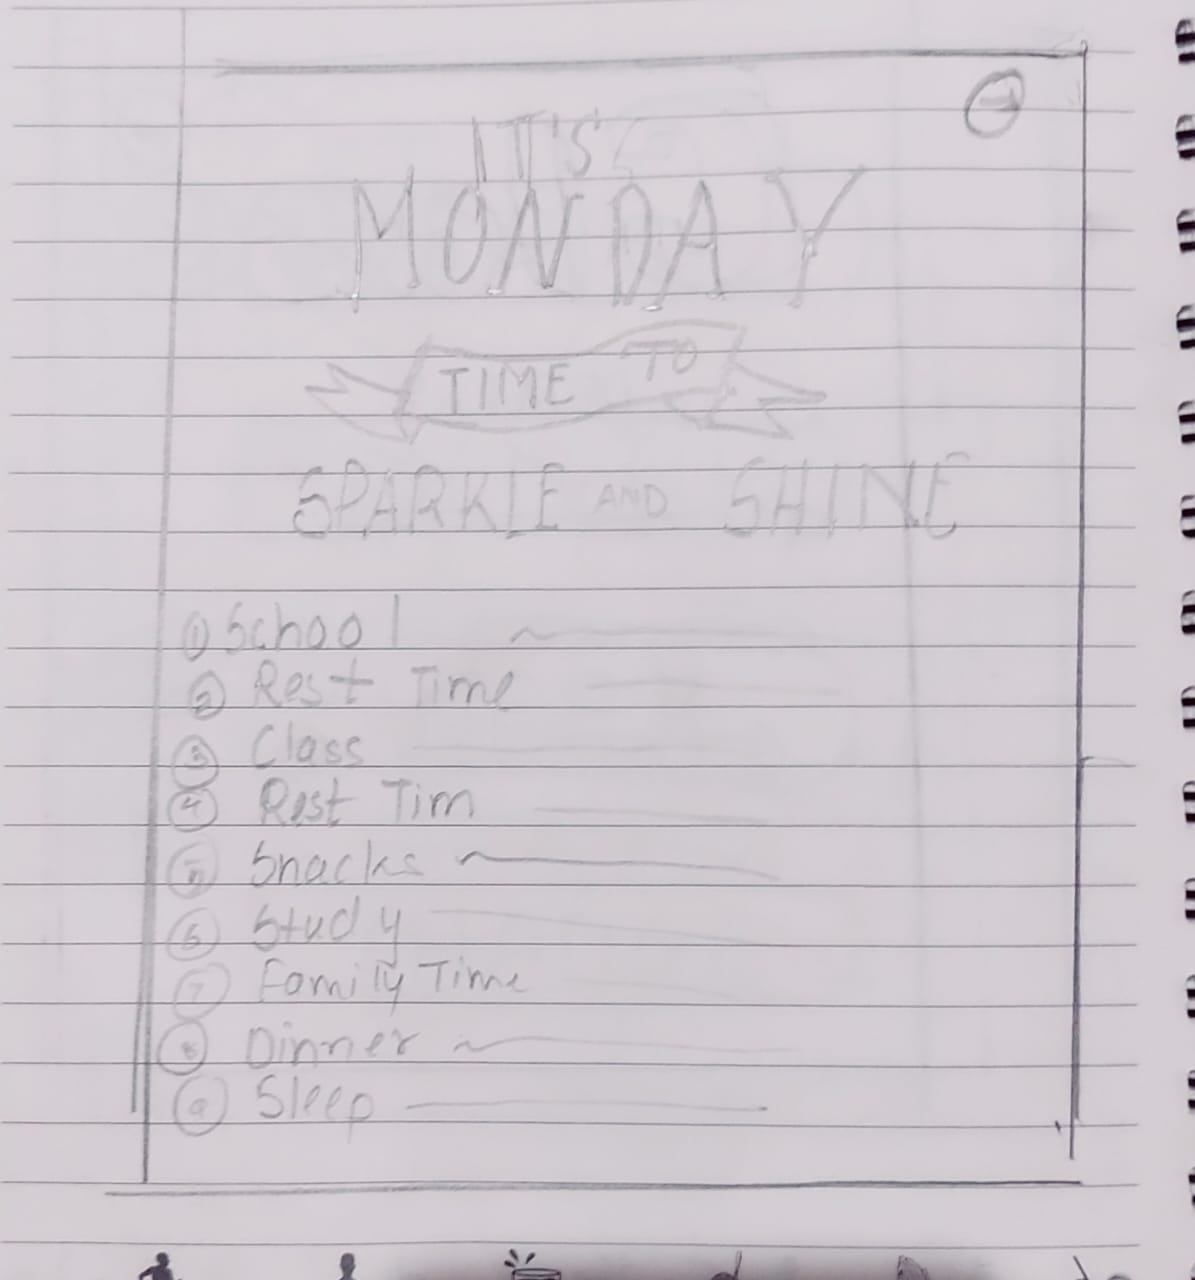 IT'S
MONDAY
TIME TO
SPARKLE AND SHINE
① School
② Rest Time
③ Class
④ Rest Tim
⑤ Snacks
⑥ Study
⑦ Family Time
⑧ Dinner
⑨ Sleep